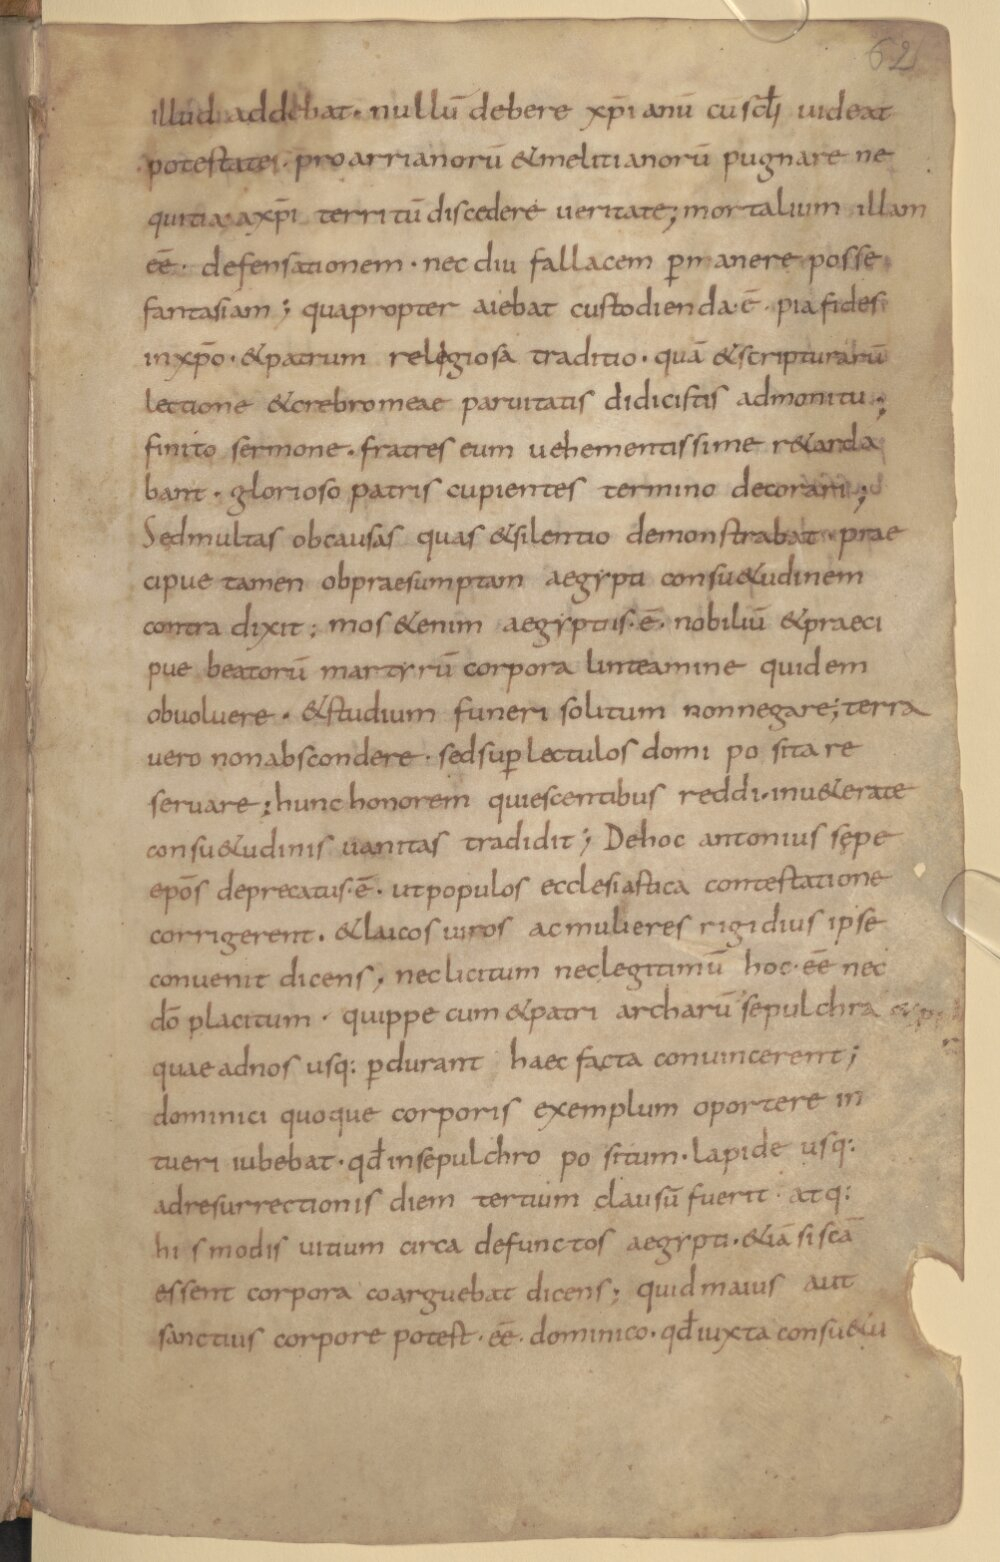 62
illud addebat · nullū debere xp̄ianū cū scđi uideat
potestates · pro arrianorū &melitianorū pugnare ne
quitia· axp̄i territū discedere ueritate; mortalium illam
eē · defensationem · nec diu fallacem ꝑmanere posse
fantasiam; quapropter aiebat custodienda·ē· pia fides
inxp̄o · &patrum religiosa traditio · quā &scripturarū
lectione &crebromeae paruitatis didicistis admonitu;
finito sermone · fratres eum uehementissime r&arda
bant · glorioso patris cupientes termino decorari;
Sedmultas obcausas quas &silentio demonstrabat · prae
cipue tamen obpraesumptam aegypti consu&udinem
contra dixit; mos &enim aegyptiis·ē· nobiliū &praeci
pue beatorū martyrū corpora linteamine quidem
obuoluere · &studium funeri solitum nonnegare; terra
uero nonabscondere · sedsuꝑ lectulos domi po sita re
seruare; hunc honorem quiescentibus reddi · inu&erate
consu&udinis uanitas tradidit; Dehoc antonius sępe
ep̄os deprecatus·ē· utpopulos ecclesiastica contestatione
corrigerent · &laicos uiros ac mulieres rigidius ipse
conuenit dicens; neclicitum neclegitimū hoc·eē nec
dō placitum · quippe cum &patriarcharū sepulchra
quae adnos usq: ꝑdurant haec facta conuincerent;
dominici quoque corporis exemplum oportere in
tueri iubebat · qđ insepulchro po situm · lapide usq:
adresurrectionis diem tertium clausū fuerit · atq:
hi s modis uitium circa defunctos aegypti · &iā si scā
essent corpora coarguebat dicens; quid maius aut
sanctius corpore potest·eē· dominico · qđ iuxta consu&u